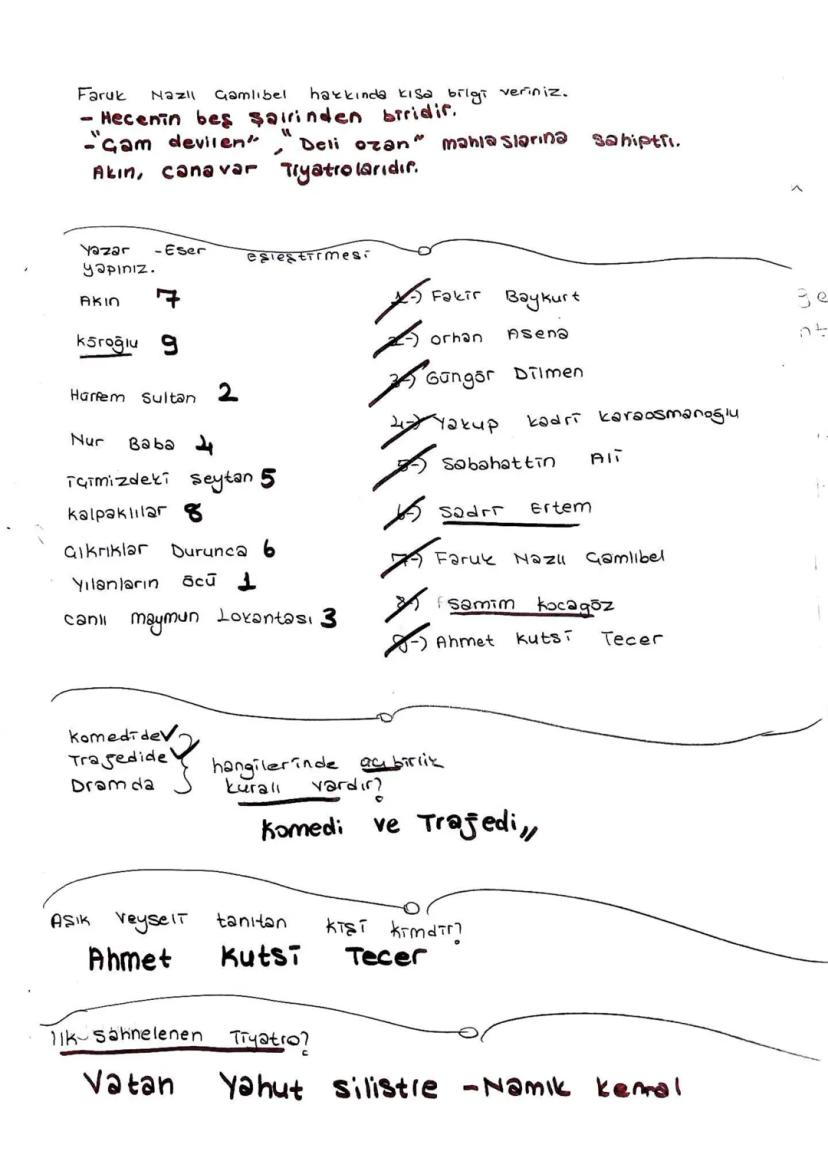 Faruk Nazlı Çamlıbel hakkında kısa bilgi veriniz.
- Hecenin beş şairinden biridir.
- "Çam deviren", "Deli ozan" mahlaslarına sahiptir.
Akın, canavar Tiyatrolarıdır.
Yazar - Eser eşleştirmesi
yapınız.
Akın 7
Köroğlu 9
Hürrem Sultan 2
Nur Baba 4
içimizdeki şeytan 5
kalpaklılar 8
Çıkrıklar Durunca 6
Yılanların öcü 1
canlı maymun Lokantası 3
1-) Fakir Baykurt
2-) orhan Asena
3-) Güngör Dilmen
4-) Yakup kadri karaosmanoğlu
5-) Sabahattin Ali
6-) Sadri Ertem
7-) Faruk Nazlı Çamlıbel
8-) samim kocagöz
9-) Ahmet kutsi Tecer
Komedide
Trajedide
Dramda
hangilerinde üç birlik
kuralı vardır?
Komedi ve Trajedi,,
Aşık Veyseli tanıtan kişi kimdir?
Ahmet Kutsi Tecer
ilk sahnelenen Tiyatro?
Vatan Yahut silistre - Namık kemal